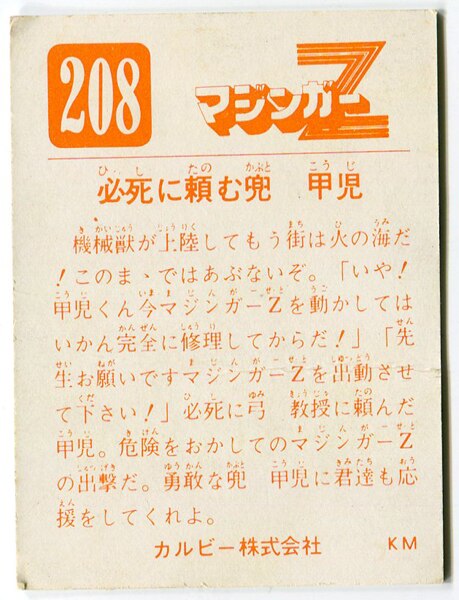 208
マジンガーZ
必死に頼む兜　甲児
機械獣が上陸してもう街は火の海だ
！このまゝではあぶないぞ。「いや！
甲児くん今マジンガーZを動かしては
いかん完全に修理してからだ！」「先
生お願いですマジンガーZを出動させ
て下さい！」必死に弓　教授に頼んだ
甲児。危険をおかしてのマジンガーZ
の出撃だ。勇敢な兜　甲児に君達も応
援をしてくれよ。
カルビー株式会社　KM